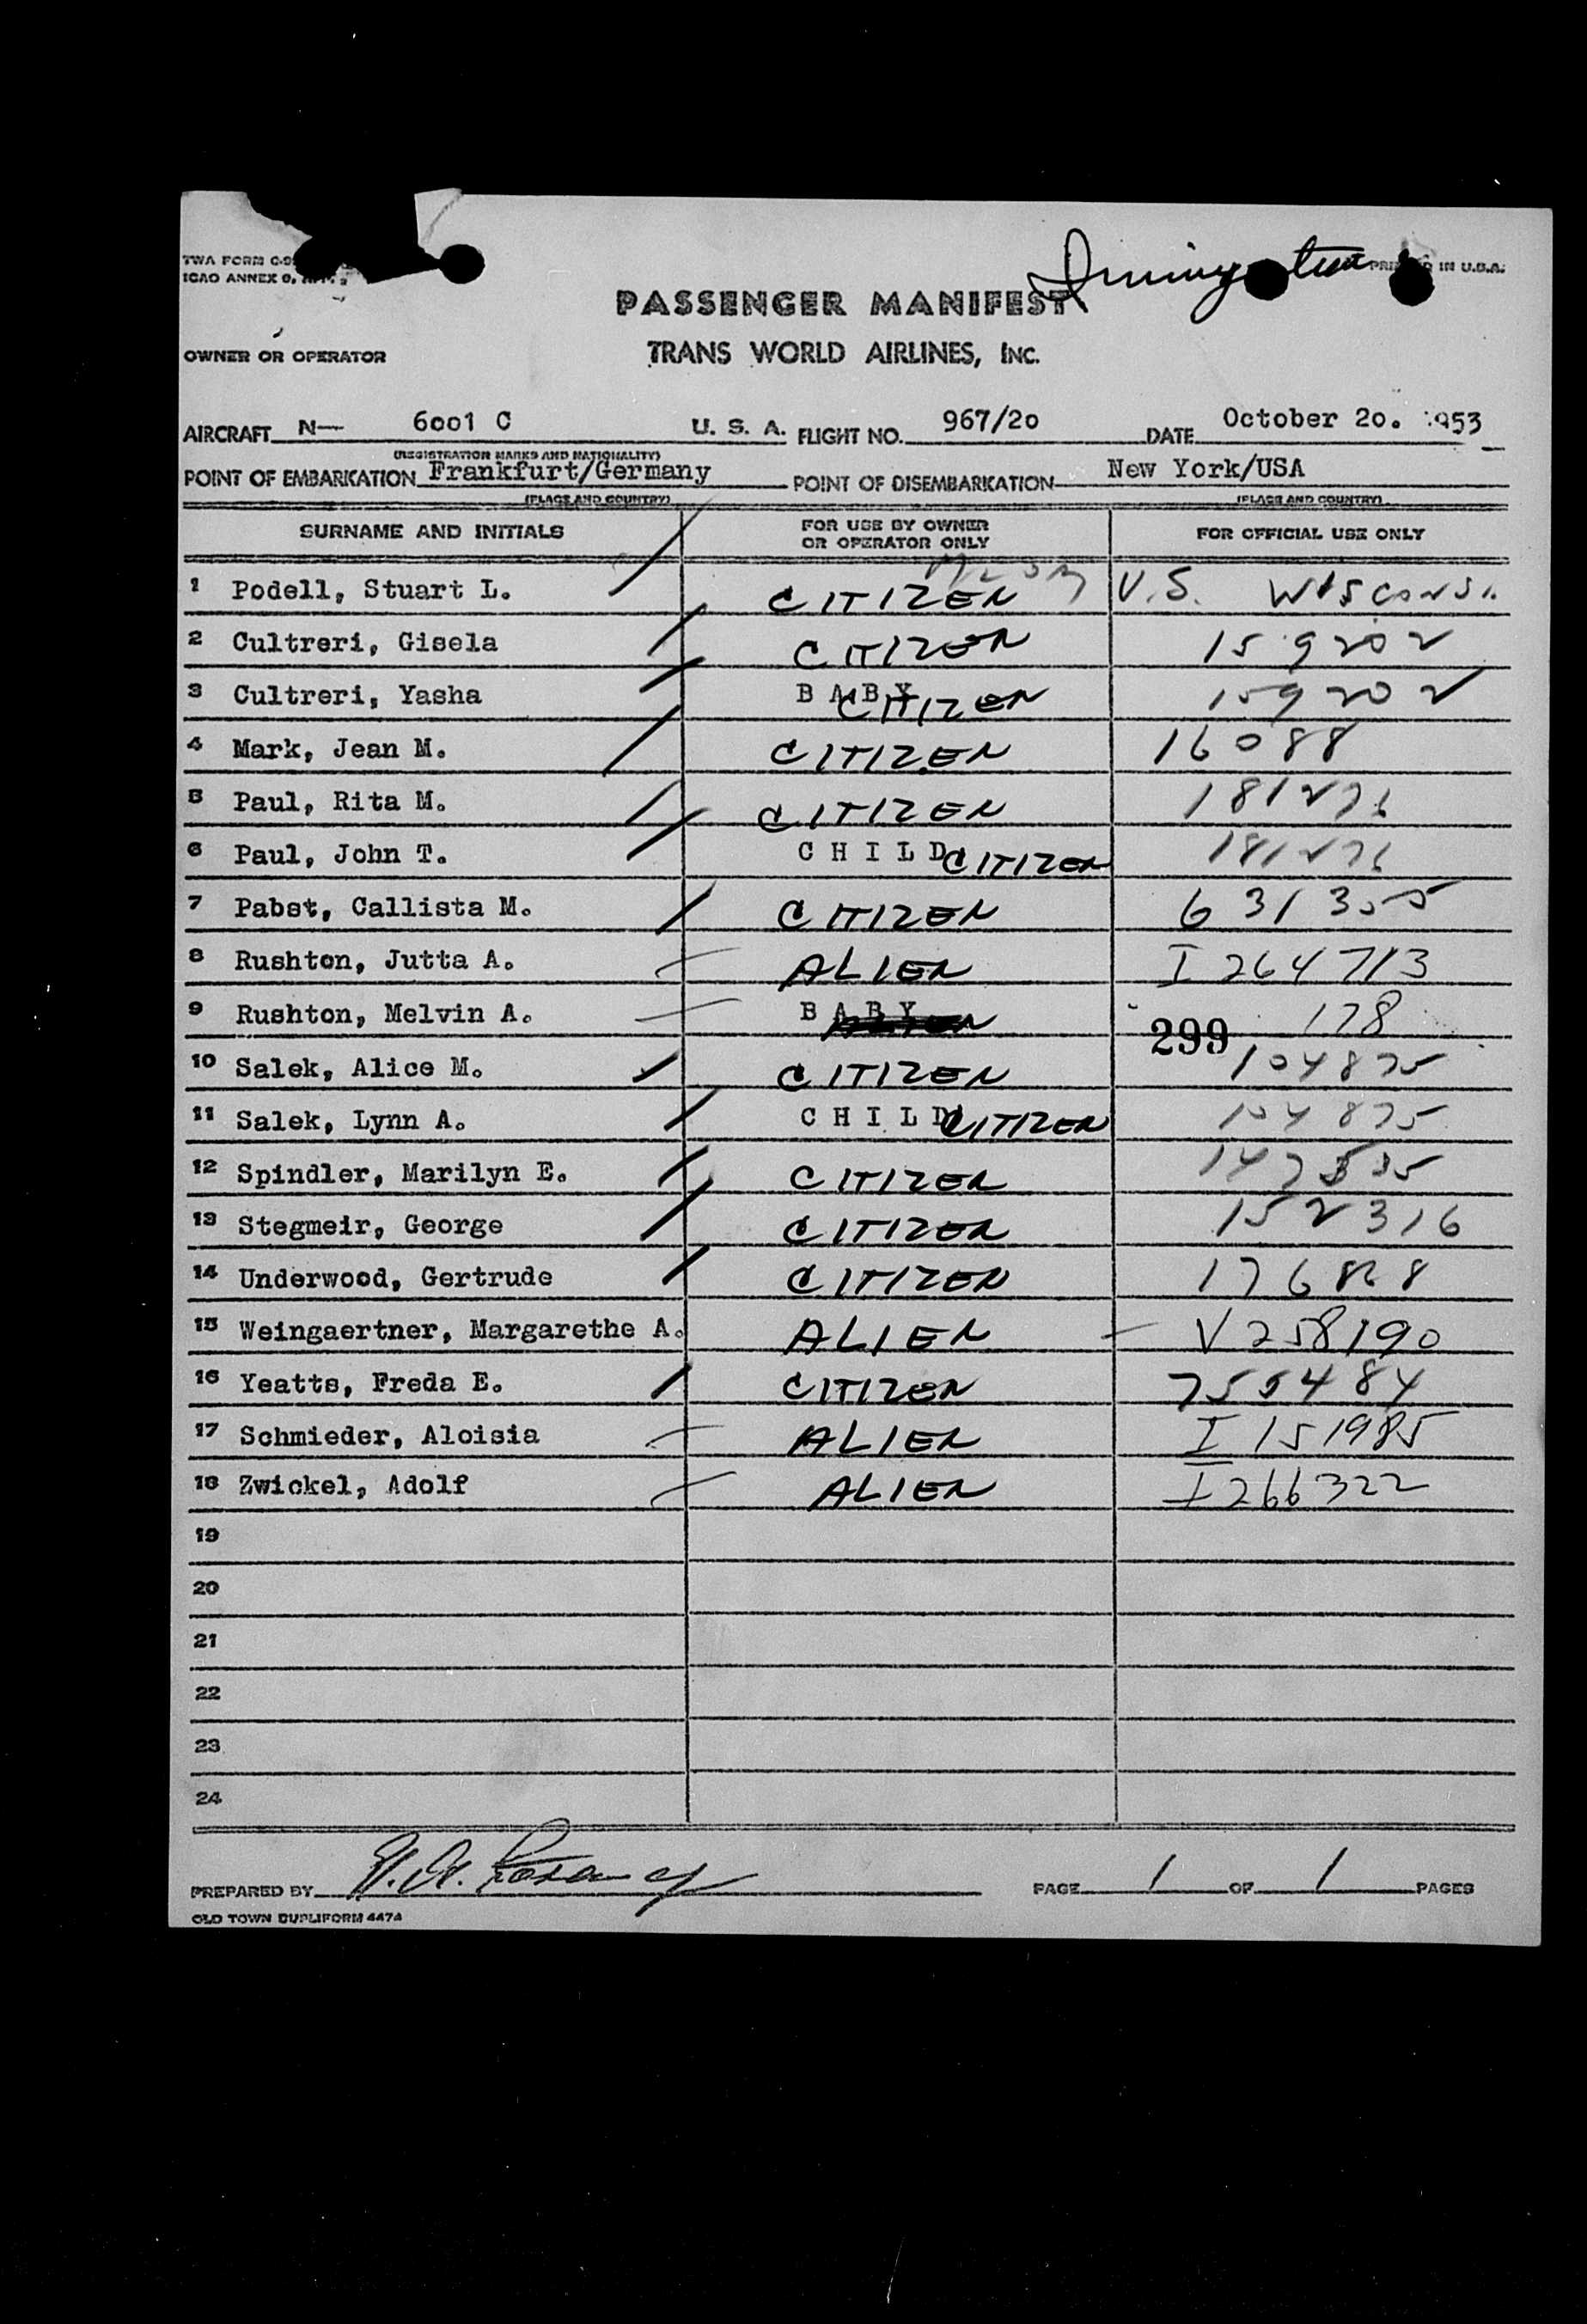 TWA FORM
ICAO ANNEX 9,
Immigration
IN U.S.A.
PASSENGER MANIFEST
OWNER OR OPERATOR
TRANS WORLD AIRLINES, INC.
AIRCRAFT N— 6001 C U. S. A. FLIGHT NO. 967/20 DATE October 20. 1953
(REGISTRATION MARKS AND NATIONALITY)
POINT OF EMBARKATION Frankfurt/Germany POINT OF DISEMBARKATION New York/USA
(PLACE AND COUNTRY) (PLACE AND COUNTRY)
SURNAME AND INITIALS FOR USE BY OWNER OR OPERATOR ONLY FOR OFFICIAL USE ONLY
1 Podell, Stuart L. CITIZEN V.S.
2 Cultreri, Gisela CITIZEN 159202
3 Cultreri, Yasha BABY CITIZEN 159202
4 Mark, Jean M. CITIZEN 16088
5 Paul, Rita M. CITIZEN 181276
6 Paul, John T. CHILD CITIZEN 181276
7 Pabst, Callista M. CITIZEN 631355
8 Rushton, Jutta A. ALIEN I 264713
9 Rushton, Melvin A. BABY 178
299
10 Salek, Alice M. CITIZEN 104875
11 Salek, Lynn A. CHILD CITIZEN 104875
12 Spindler, Marilyn E. CITIZEN
13 Stegmeir, George CITIZEN 152316
14 Underwood, Gertrude CITIZEN 176828
15 Weingaertner, Margarethe A. ALIEN V 258190
16 Yeatts, Freda E. CITIZEN 755484
17 Schmieder, Aloisia ALIEN I 151985
18 Zwickel, Adolf ALIEN I 266322
19
20
21
22
23
24
PREPARED BY PAGE 1 OF 1 PAGES
OLD TOWN DUPLIFORM 4474